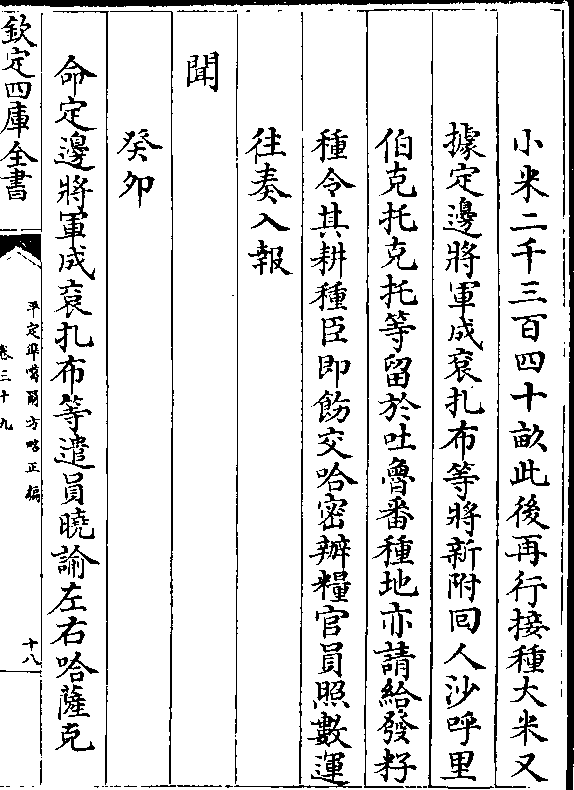 小米二千三百四十畝此後再行接種大米又
據定邊將軍成袞扎布等將新附回人沙呼里
伯克托克托等留於吐魯番種地亦請給發籽
種令其耕種臣即飭交哈密辦糧官員照數運
往奏入報
聞
癸卯
命定邊將軍成袞扎布等遣員曉諭左右哈薩克
欽定四庫全書
平定準噶爾方略正編
卷三十九
十八